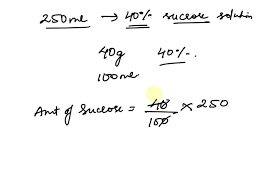 250ml → 40% sucrose solution
40g 40%.
100ml
Amt of Sucrose = 40/100 × 250